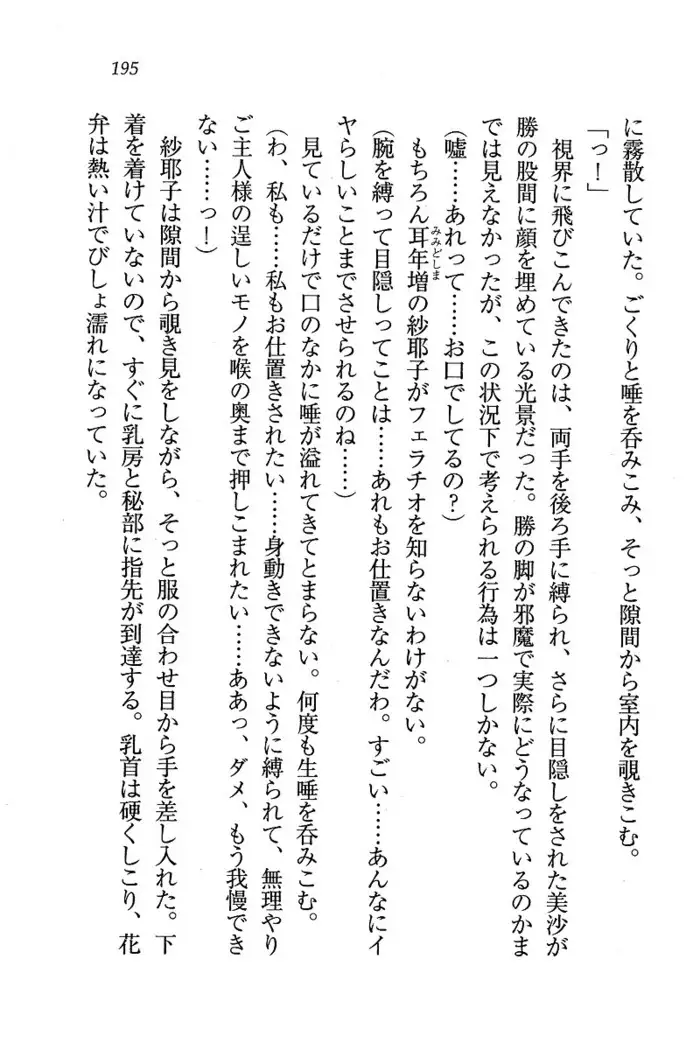 195
に霧散していた。ごくりと唾を呑みこみ、そっと隙間から室内を覗きこむ。
「っ！」
視界に飛びこんできたのは、両手を後ろ手に縛られ、さらに目隠しをされた美沙が
勝の股間に顔を埋めている光景だった。勝の脚が邪魔で実際にどうなっているのかま
では見えなかったが、この状況下で考えられる行為は一つしかない。
（嘘……あれって……お口でしてるの？）
もちろん耳年増（みみどしま）の紗耶子がフェラチオを知らないわけがない。
（腕を縛って目隠しってことは……あれもお仕置きなんだわ。すごい……あんなにイ
ヤらしいことまでさせられるのね……）
見ているだけで口のなかに唾が溢れてきてとまらない。何度も生唾を呑みこむ。
（わ、私も……私もお仕置きされたい……身動きできないように縛られて、無理やり
ご主人様の逞しいモノを喉の奥まで押しこまれたい……ああっ、ダメ、もう我慢でき
ない……っ！）
紗耶子は隙間から覗き見をしながら、そっと服の合わせ目から手を差し入れた。下
着を着けていないので、すぐに乳房と秘部に指先が到達する。乳首は硬くしこり、花
弁は熱い汁でびしょ濡れになっていた。